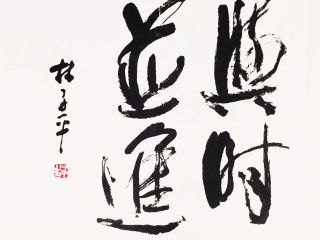 與时
並進
林子平